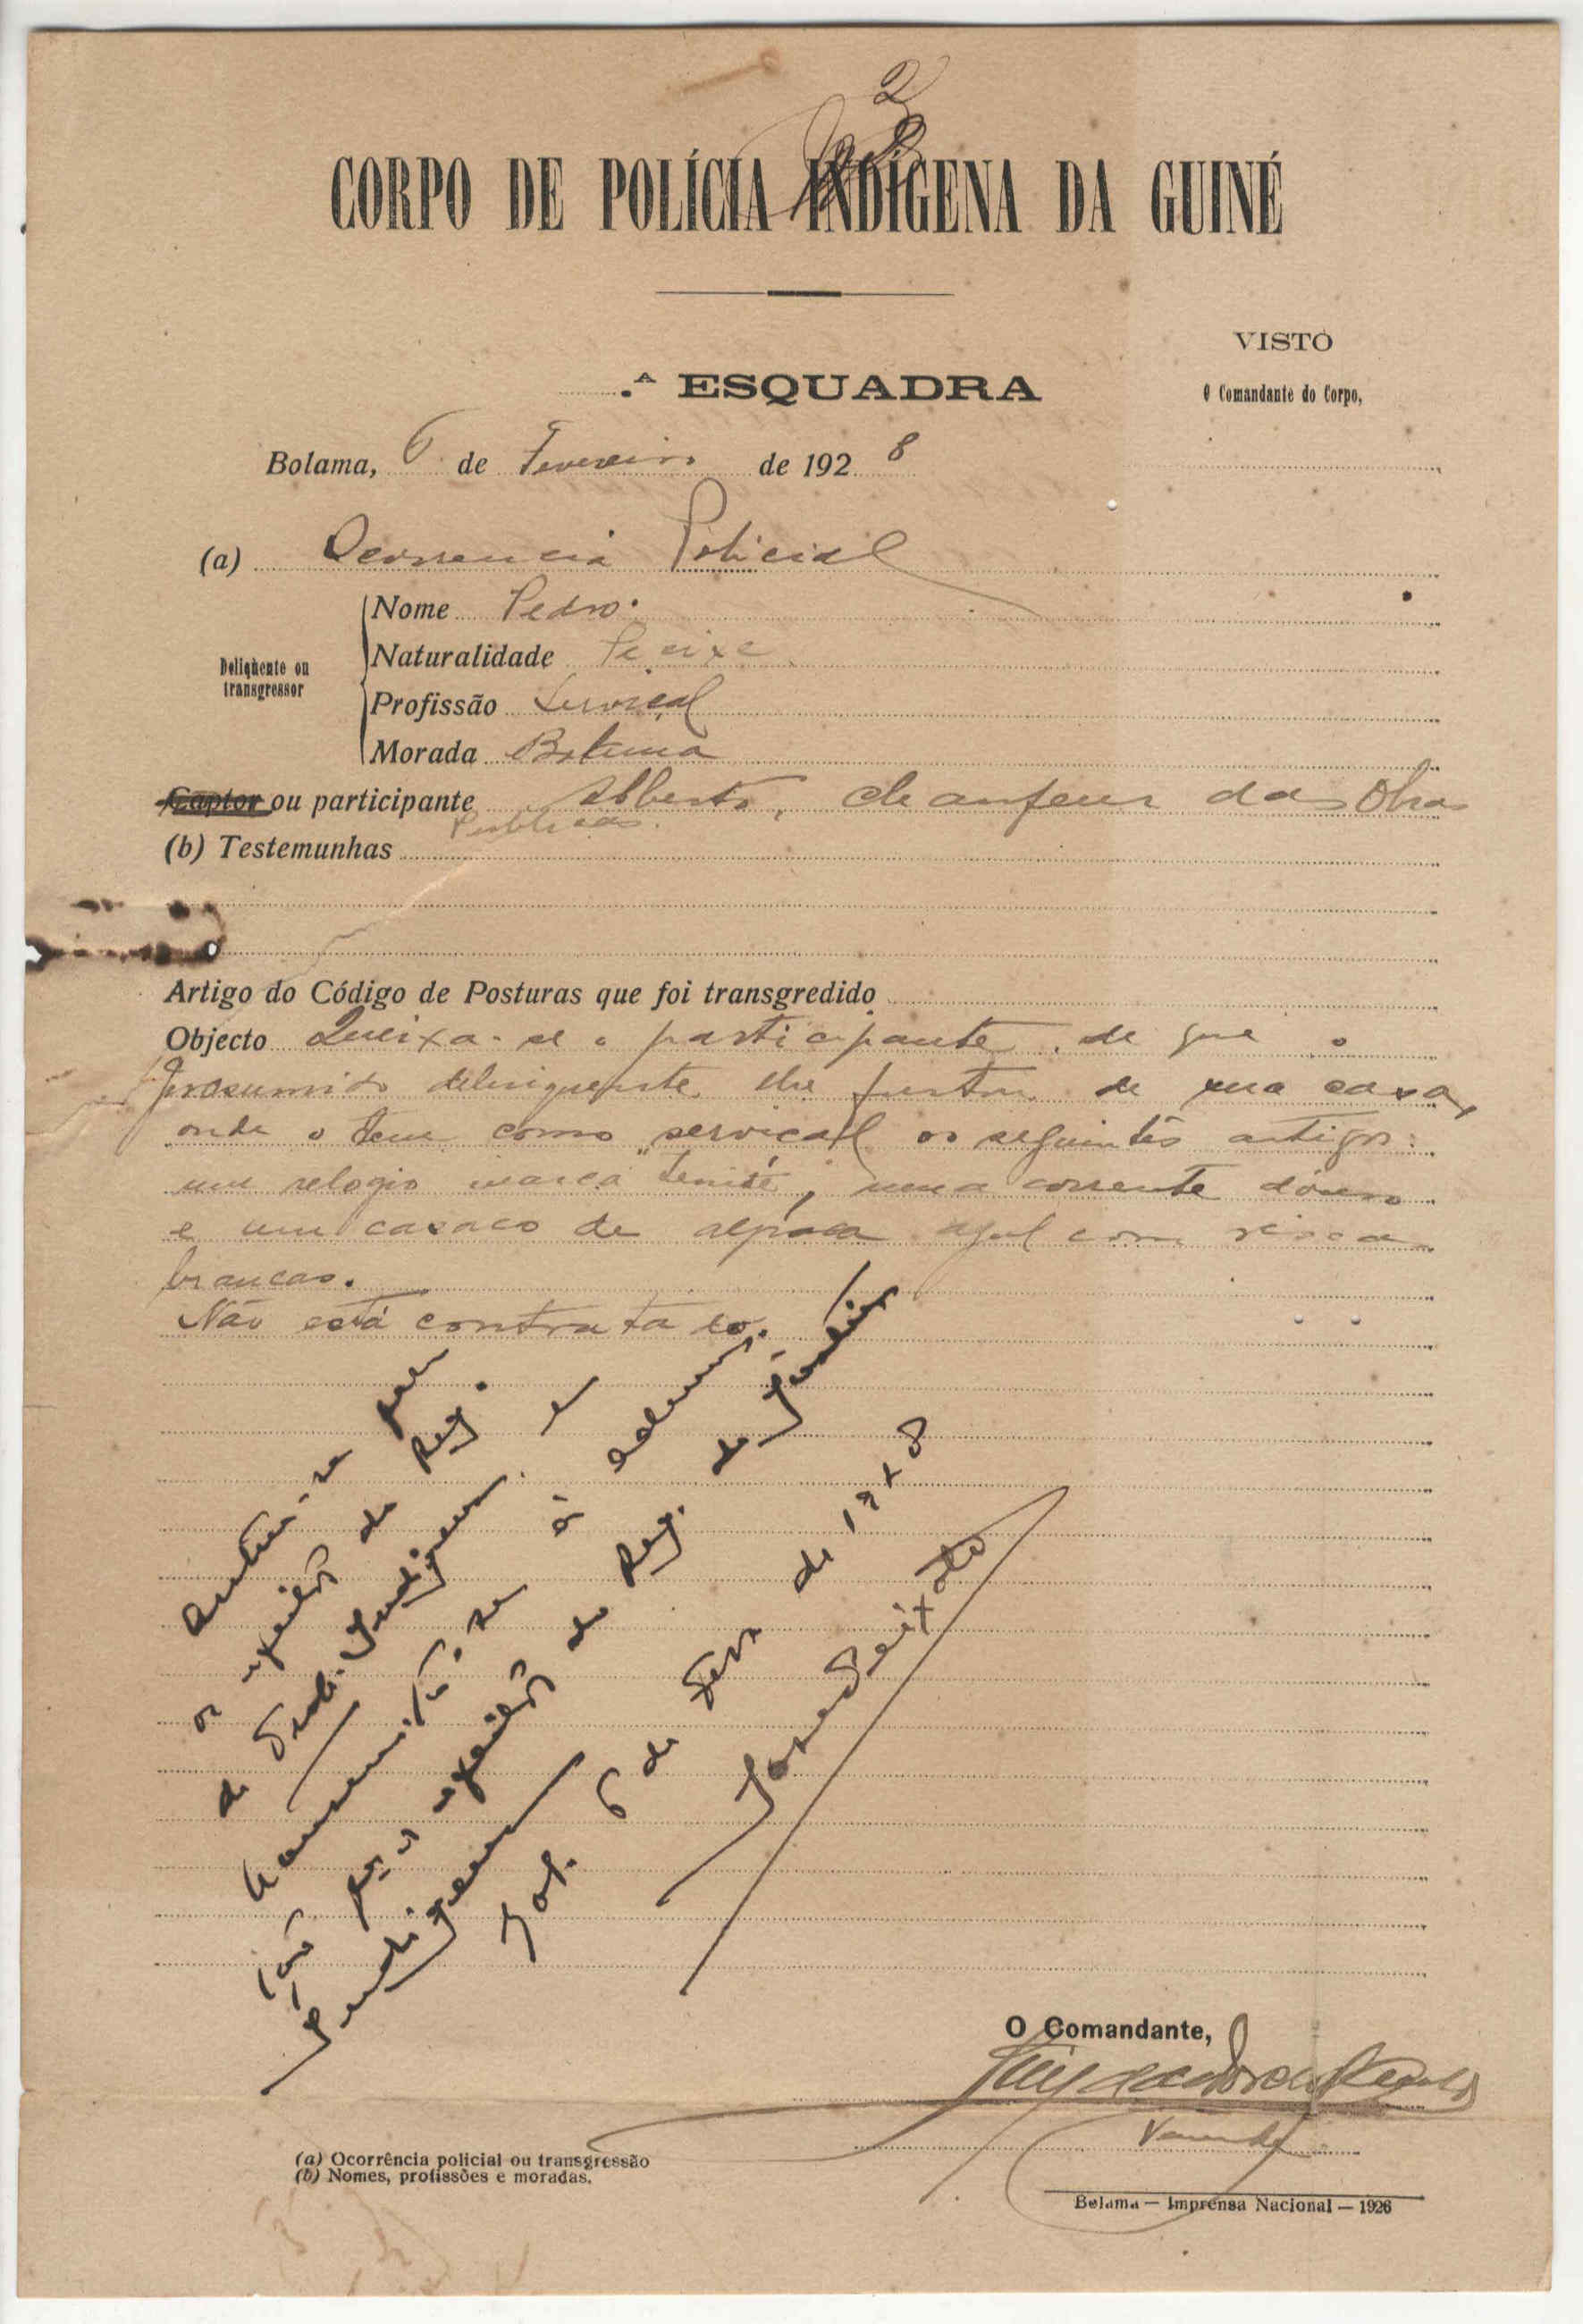 2
CORPO DE POLÍCIA INDÍGENA DA GUINÉ
VISTO
O Comandante do Corpo,
.ᴬ ESQUADRA
Bolama, 6 de Fevereiro de 1928
(a) Ocorrencia Policial
Deliqüente ou transgressor
Nome Pedro.
Naturalidade Pecixe
Profissão Serviçal
Morada Bolama
Captor ou participante Alberto, chaufeur das Obras
Publicas.
(b) Testemunhas
Artigo do Código de Posturas que foi transgredido
Objecto Queixa-se o participante de que o
presumido delinquente lhe furtou de sua casa,
onde o tem como serviçal os seguintes artigos:
um relogio marca, uma corrente d'ouro
e um casaco de alpaca azul com riscas
brancas.
Não está contratado.
Autue-se por
os efeitos do Reg.
do Trab. Indigena e
à
do Reg. do
Indigena
Bol. 6 de Fevº de 1928
Peixoto
O Comandante,
(a) Ocorrência policial ou transgressão
(b) Nomes, profissões e moradas.
Bolama — Imprensa Nacional — 1926